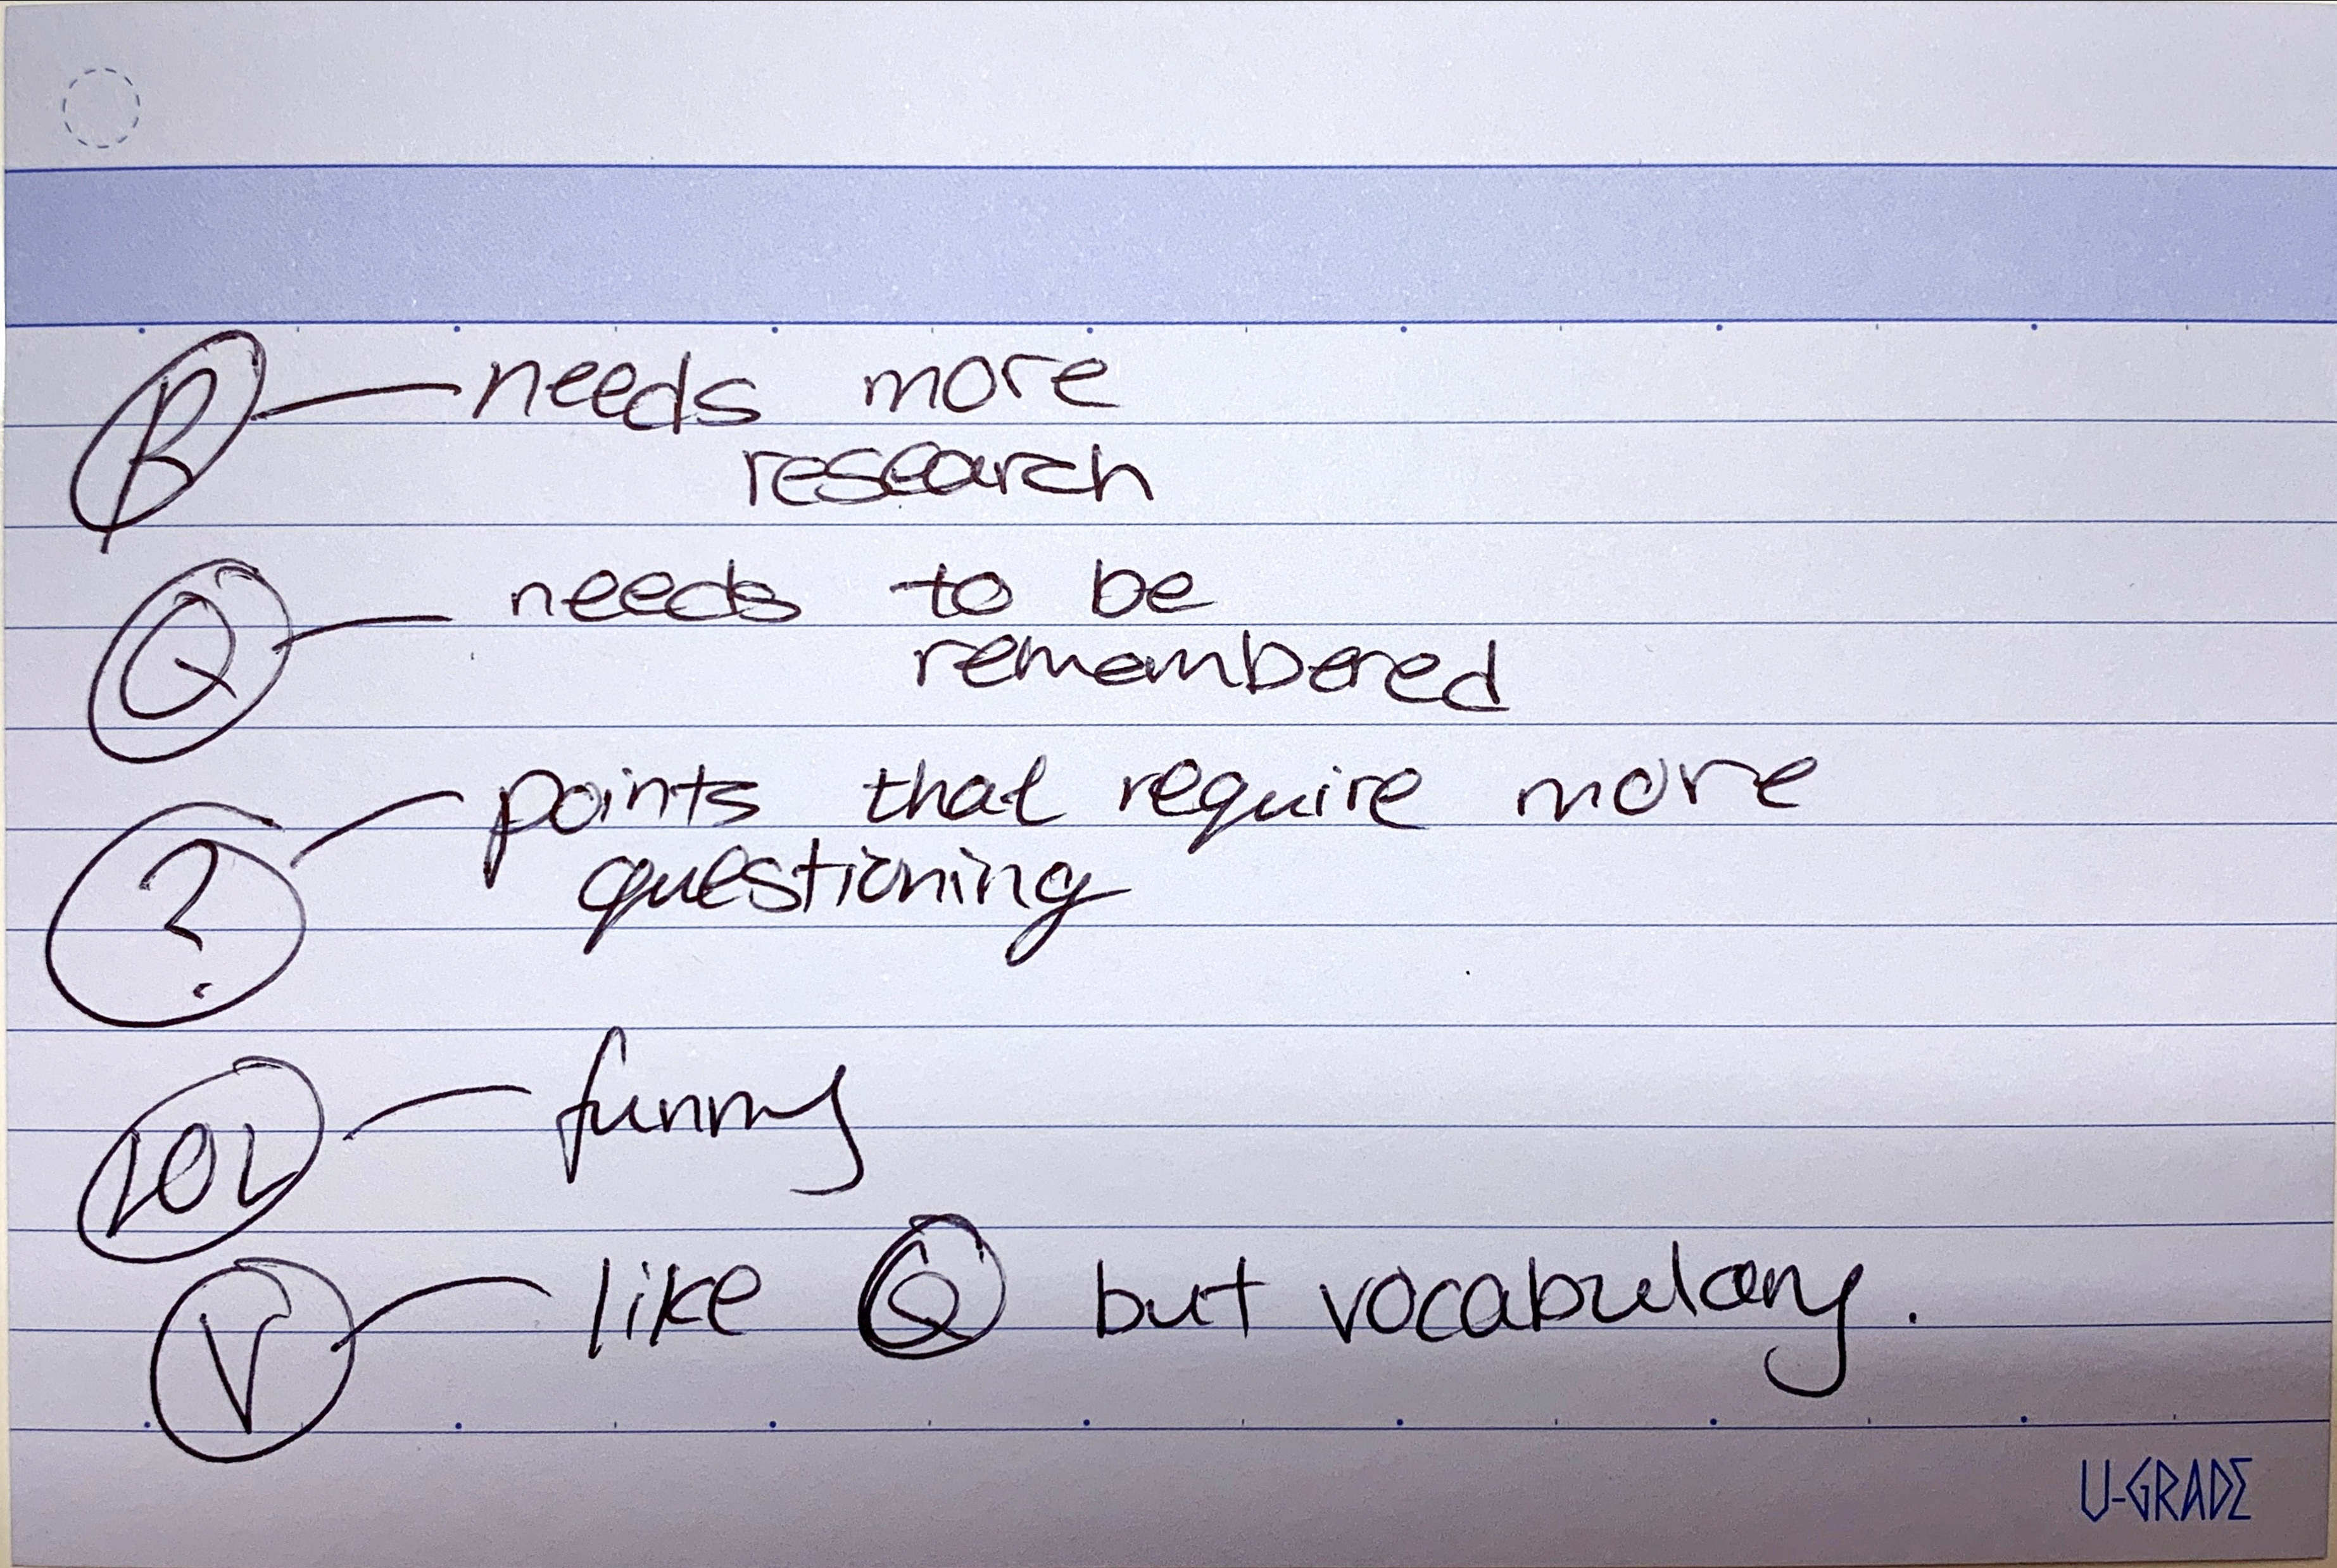 R needs more
research
Q needs to be
remembered
? points that require more
questioning
LOL funny
V like Q but vocabulary.
U-GRADE